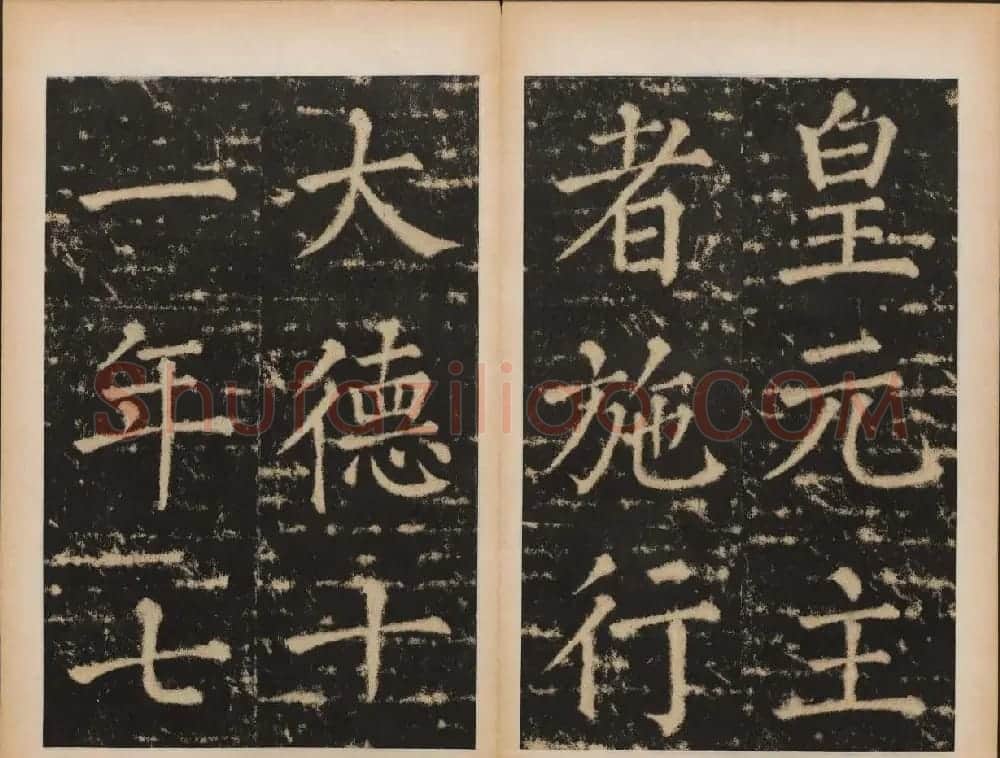 皇元主
者施行
大德十
一年七
Shufaziliao.COM